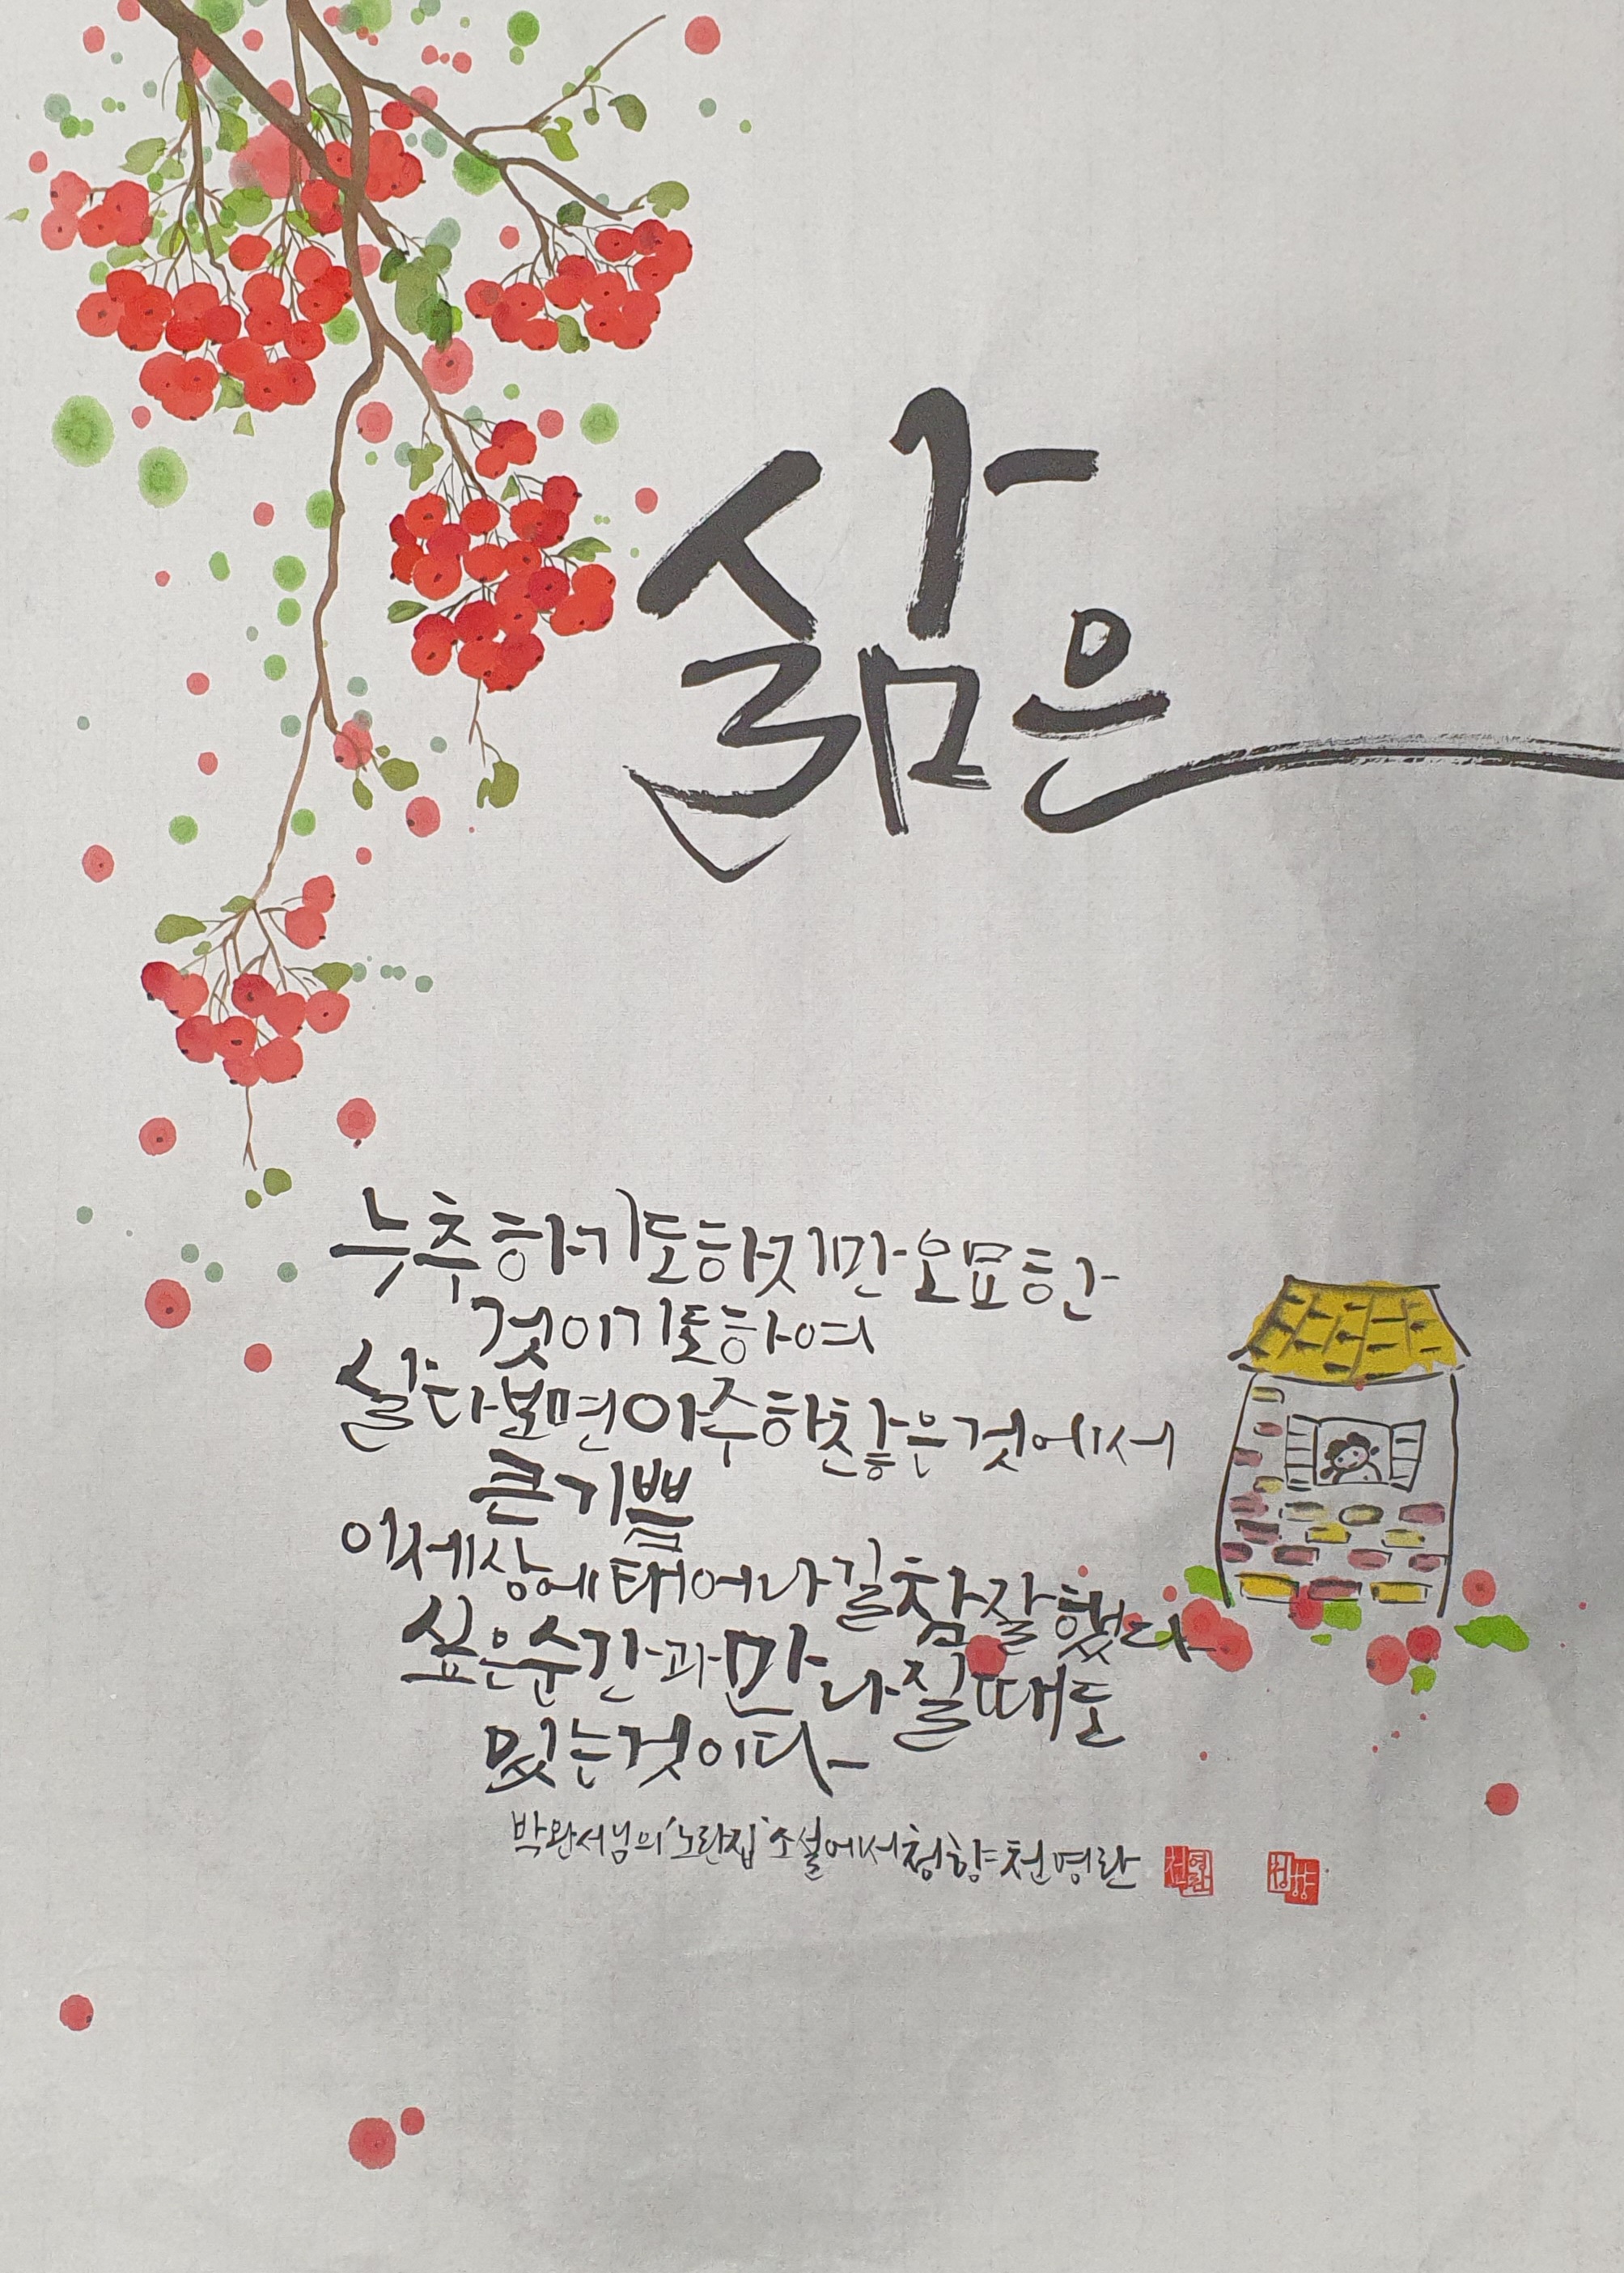 삶은
누추하기도하지만오묘한
것이기도하여
살다보면아주하찮은것에서
큰기쁨
이세상에태어나길참잘했다
싶은순간과만나질때도
있는것이다
박완서님의'노란집'소설에서청향천명란